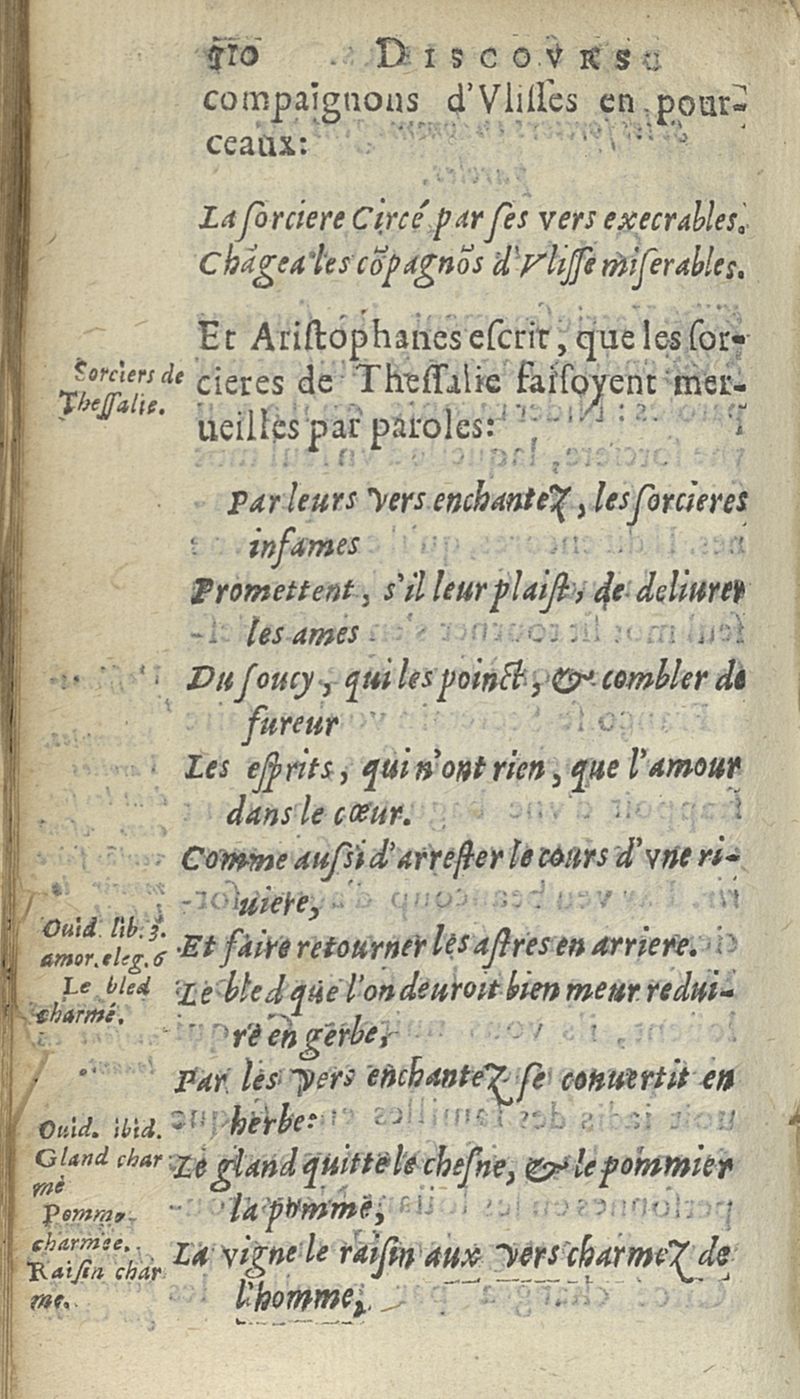 510 DISCOVRS
compaignons d'Vlisses en pour-
ceaux:
La sorciere Circé par ses vers execrables.
Chãgea les cõpagnõs d'Vlisse miserables.
Et Aristophanes escrit, que les sor-
Sorciers de
Thessalie.
cieres de Thessalie faisoyent mer-
ueilles par paroles:
Par leurs vers enchantez, les sorcieres
infames
Promettent, s'il leur plaist, de deliurer
les ames
Du soucy, qui les poinct, & combler de
fureur
Les esprits, qui n'ont rien, que l'amour
dans le cœur.
Comme aussi d'arrester le cours d'vne ri-
uiere,
Ouid. lib. 3.
amor. eleg. 6
Et faire retourner les astres en arriere.
Le bled
charmé.
Le bled que l'on deuroit bien meur redui-
re en gerbe,
Par les vers enchantez se conuertit en
herbe:
Ouid. ibid.
Gland char
mé
Le gland quitte le chesne, & le pommier
la pomme,
Pomme
charmee.
Raisin char
me.
La vigne le raisin aux vers charmez de
l'homme,